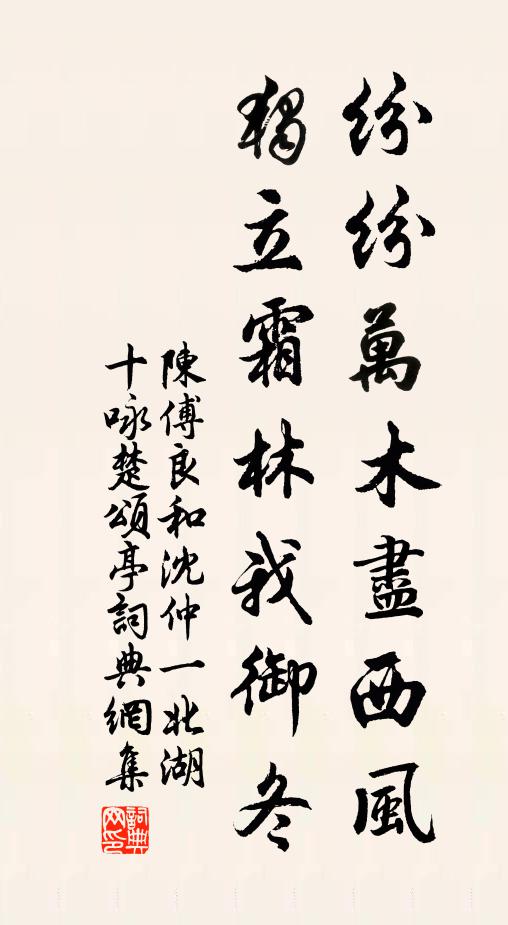 紛紛萬木盡西風
獨立霜林我御冬
陳傅良和沈仲一北湖
十咏楚頌亭詞典網集
詞典網印